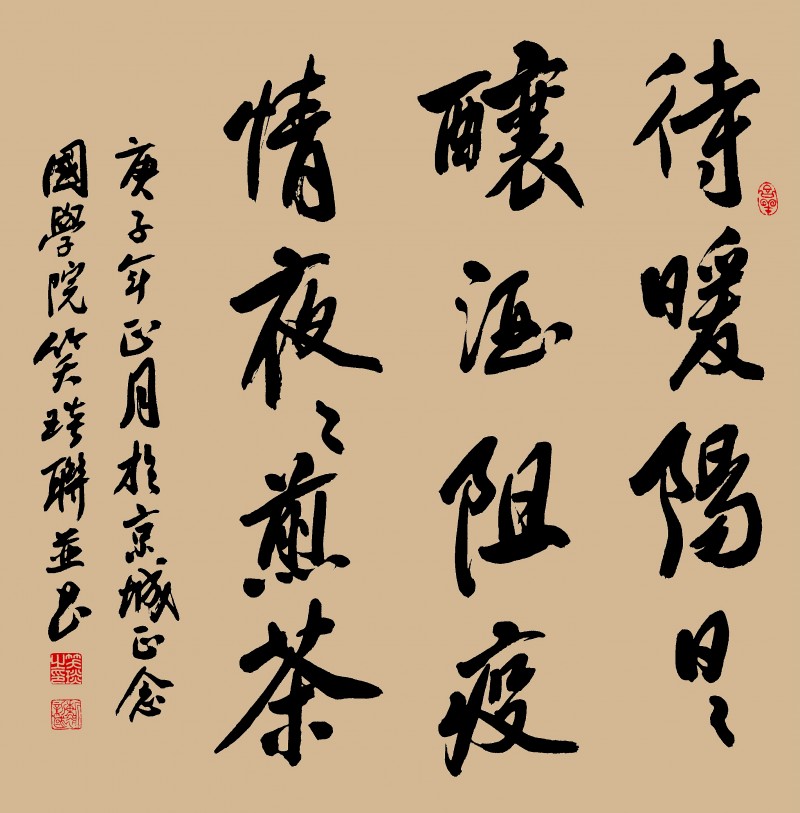 待暖陽日々
釀酒阻疫
情夜々煎茶
庚子年正月於京城正念
國學院笑琰聯並书